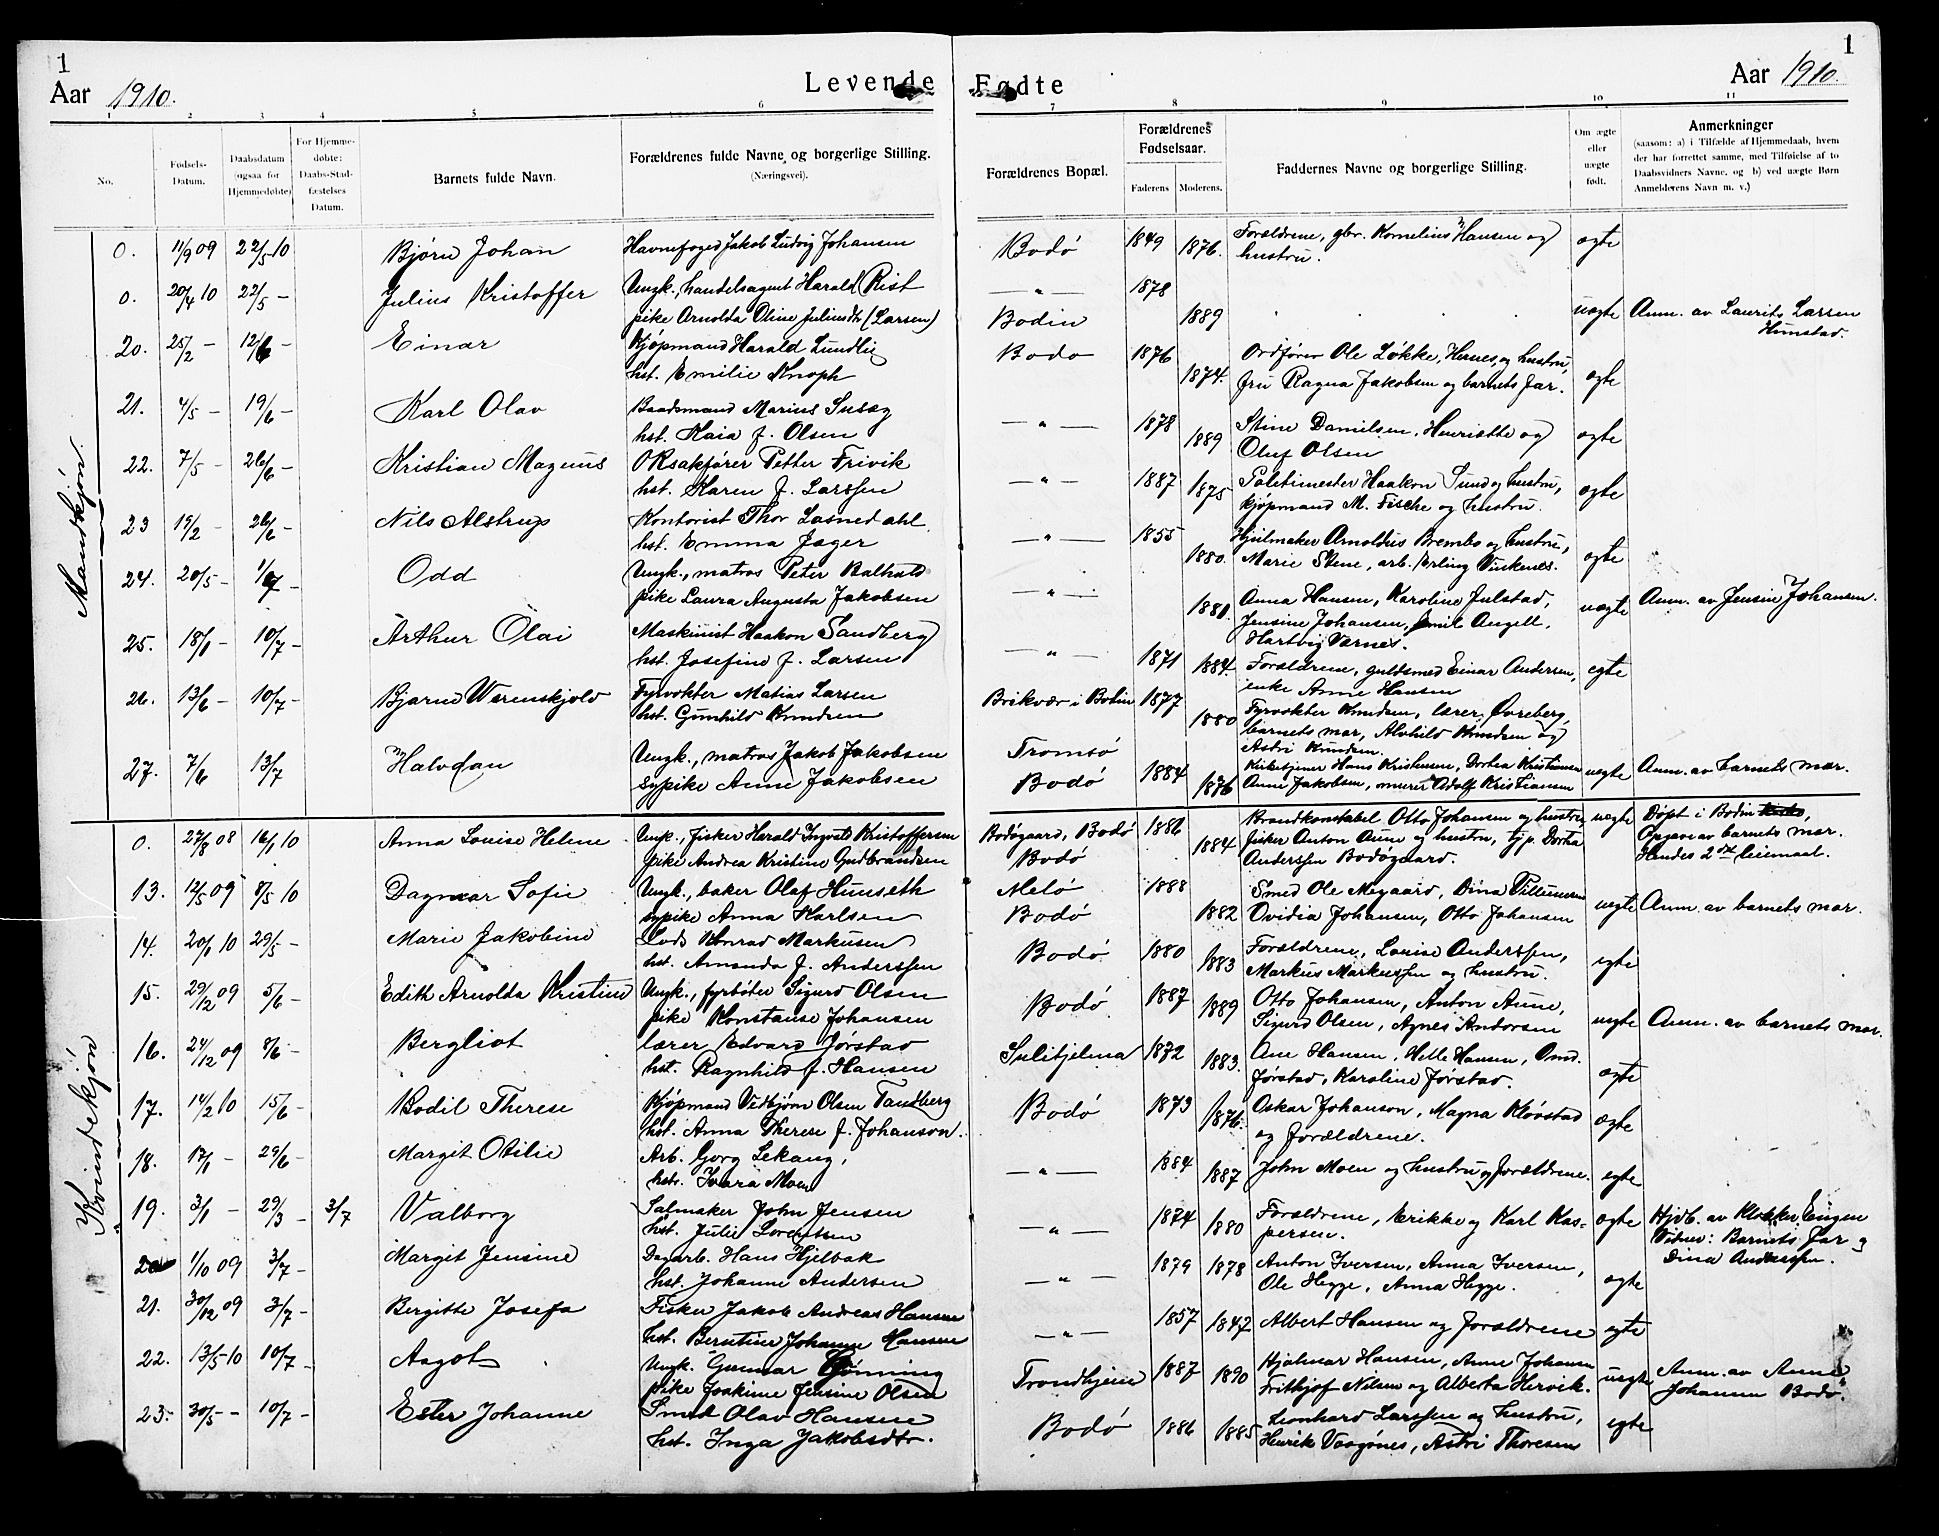 1
Aar 1910.
Levende
1
2
3
4
5
6
No.
Fødsels-
Datum.
Daabsdatum
(ogsaa for
Hjemmedøbte)
For Hjemme-
døbte:
Daabs-Stad-
fæstelses
Datum.
Barnets fulde Navn.
Forældrenes fulde Navne og borgerlige Stilling.
(Næringsvei).
Mandkjøn.
0. 11/9 09 22/5 10 Bjørn Johan Havnefoged Jakob Ludvig Johansen
0. 20/4 10 22/5 — Julius Kristoffer Ungk., handelsagent Harald Rist
pike Arnolda Oline Juliusdtr (Larsen)
20. 25/2 — 12/6 — Einar Kjøpmand Harald Lundlie
hst. Emilie Knoph
21. 4/5 — 19/6 — Karl Olav Baadsmand Marius Susæg
hst. Kaia f. Olsen
22. 7/5 — 26/6 — Kristian Magnus ORsakfører Petter Frivik
hst. Karen f. Larssen
23 19/2 — 26/6 — Nils Alstrup Kontorist Thor Lasnedahl
hst. Emma Jager
24. 20/5 — 1/7 — Odd Ungk., matros Peter
pike Laura Augusta Jakobsen
25. 18/1 — 10/7 — Arthur Olai Maskinist Haakon Sandberg
hst. Josefine f. Larsen
26. 13/6 — 10/7 — Bjarne Werenskjold Fyrvokter Matias Larsen
hst. Gunhild Knudsen
27. 7/6 13/7 Halvdan Ungk., matros Jakob Jakobsen
sypike Anne Jakobsen
Kvindekjøn
0. 27/8 08 16/1 10 Anna Louise Helene Ungk., fisker Harald Ingvald Kristoffersen
pike Andrea Kristine Gudbrandsen
13. 12/5 09 8/5 10 Dagmar Sofie Ungk., baker Olaf Hunseth
sypike Anna Karlsen
14. 20/1 10 29/5 — Marie Jakobine Lods Konrad Markusen
hst. Amanda f. Anderssen
15. 29/12 09 5/6 — Edith Arnolda Kristine Ungk., fyrbøter Sigurd Olsen
pike Konstanse Johansen
16. 24/12 09 8/6 — Bergliot lærer Edvard Jørstad
hst. Ragnhild f. Hansen
17. 14/2 10 15/6 — Bodil Therese Kjøpmand Vidbjørn Olsen Tandberg
hst. Anna Therese f. Johanson.
18. 17/1 — 29/6 — Margit Otilie Arb. Georg Lekang,
hstr. Ivara Moen
19. 3/1 — 29/3 — 3/7 Valborg Salmaker John Jensen
hst. Julie Lorentsen
20 1/10 09 3/7 — Margit Jensine Dagarb. Hans Hjelbak
hst. Johanne Andersen
21. 30/12 09 3/7 — Bergitte Josefa Fisker Jakob Andreas Hansen
hst. Berntine Johanne Hansen
22. 13/5 10 10/7 — Aagot Ungk. Gunnar Grønning
pike Joakime Jensine Olsen
23. 30/5 — 10/7 — Ester Johanne Smed Olav Hansen
hst. Inga Jakobsdtr.
1
Fødte
Aar 1910.
7
8
9
10
11
Forældrenes Bopæl.
Forældrenes
Fødselsaar.
Faderens
Moderens.
Faddernes Navne og borgerlige Stilling.
Om ægte
eller
uægte
født.
Anmerkninger
(saasom: a) i Tilfælde af Hjemmedaab, hvem
der har forrettet samme, med Tilføielse af to
Daabsvidners Navne, og b) ved uægte Børn
Anmelderens Navn m. v.)
Bodø 1849 1876. Forældrene, gbr. Kornelius Hansen og
hustru. ægte
— " — 1878
Bodin 1889 uægte Anm. av Laurits Larsen
Hunstad.
Bodø 1876 1874. Ordfører Ole Løkke, Hernes, og hustru,
fru Ragna Jakobsen og barnets far. ægte
— " — 1878 1889 Stine Danielsen, Henriette og
Oluf Olsen ægte
— " — 1887 1875 Politimester Haakon Sund og hustru,
kjøpmand M. Fische og hustru. ægte
— " — 1855 1880. Hjulmaker Arnoldus Brembo og hustru,
Marie Stene, arb. Erling Vinkenes. ægte
— " — 1881. Anna Hansen, Karoline Julstad,
Jensine Johansen, Emil Angell,
Hartvig Værnes. uægte Anm. av Jensine Johansen.
— " — 1871 1884. Forældrene, guldsmed Einar Andersen,
enke Anne Hansen egte
Brikvær i Bodin 1877 1880 Fyrvokter Knudsen, lærer Øvreberg,
barnets mor, Alvhild Knudsen og
Astri Knudsen.
Tromsø
Bodø 1884 1876 Kirketjener Hans Kristensen, Dortea Kristiansen
Anne Jakobsen, murer Adolf Kristiansen uægte Anm. av barnets mor.
Bodøgaard, Bodø 1886 Brandkonstabel Otto Johansen og hustru
Bodø 1884 fisker Anton Aune og hustru, tjp. Dortea
Anderssen Bodøgaard. uægte Døpt i Bodin
Opgave av barnets mor.
Hendes 2det leiermaal.
Melø 1888 Smed Ole Megaard, Dina Pettersen
Bodø 1882 Ovidia Johansen, Otto Johansen uegte Anm. av barnets mor.
Bodø 1880 1883 Forældrene, Louise Anderssen,
Markus Markussen og hustru. egte
Bodø 1887 1889 Otto Johansen, Anton Aune,
Sigurd Olsen, Agnes Andorsen uegte Anm. av barnets mor.
Sulitjelma 1872 1883. Ane Hansen, Helle Hansen, Omd.
Jørstad, Karoline Jørstad. ægte
Bodø 1873 1876. Oskar Johanson, Magna Kløvstad
og forældrene. ægte
— " — 1884 1887 John Moen og hustru og forældrene. egte
— " — 1874 1880 Forældrene, Erikke og Karl Kas-
persen. ægte Hjdb. av Klokker Engen
Vidner: Barnets far og
Dina Anderssen.
— " — 1879 1878 Anton Iversen, Anna Iversen,
Ole Hegge, Anna Hegge. ægte
— " — 1857 1847 Albert Hansen og forældrene egte
Trondhjem 1887 1890 Hjalmar Hansen, Anne Johansen
Frithjof Nilsen og Alberta Hervik. uegte Anm. av Anne
Johansen Bodø.
Bodø 1886 1885 Leonhard Larssen og hustru,
Henrik Vaagønes, Astri Thoresen egte